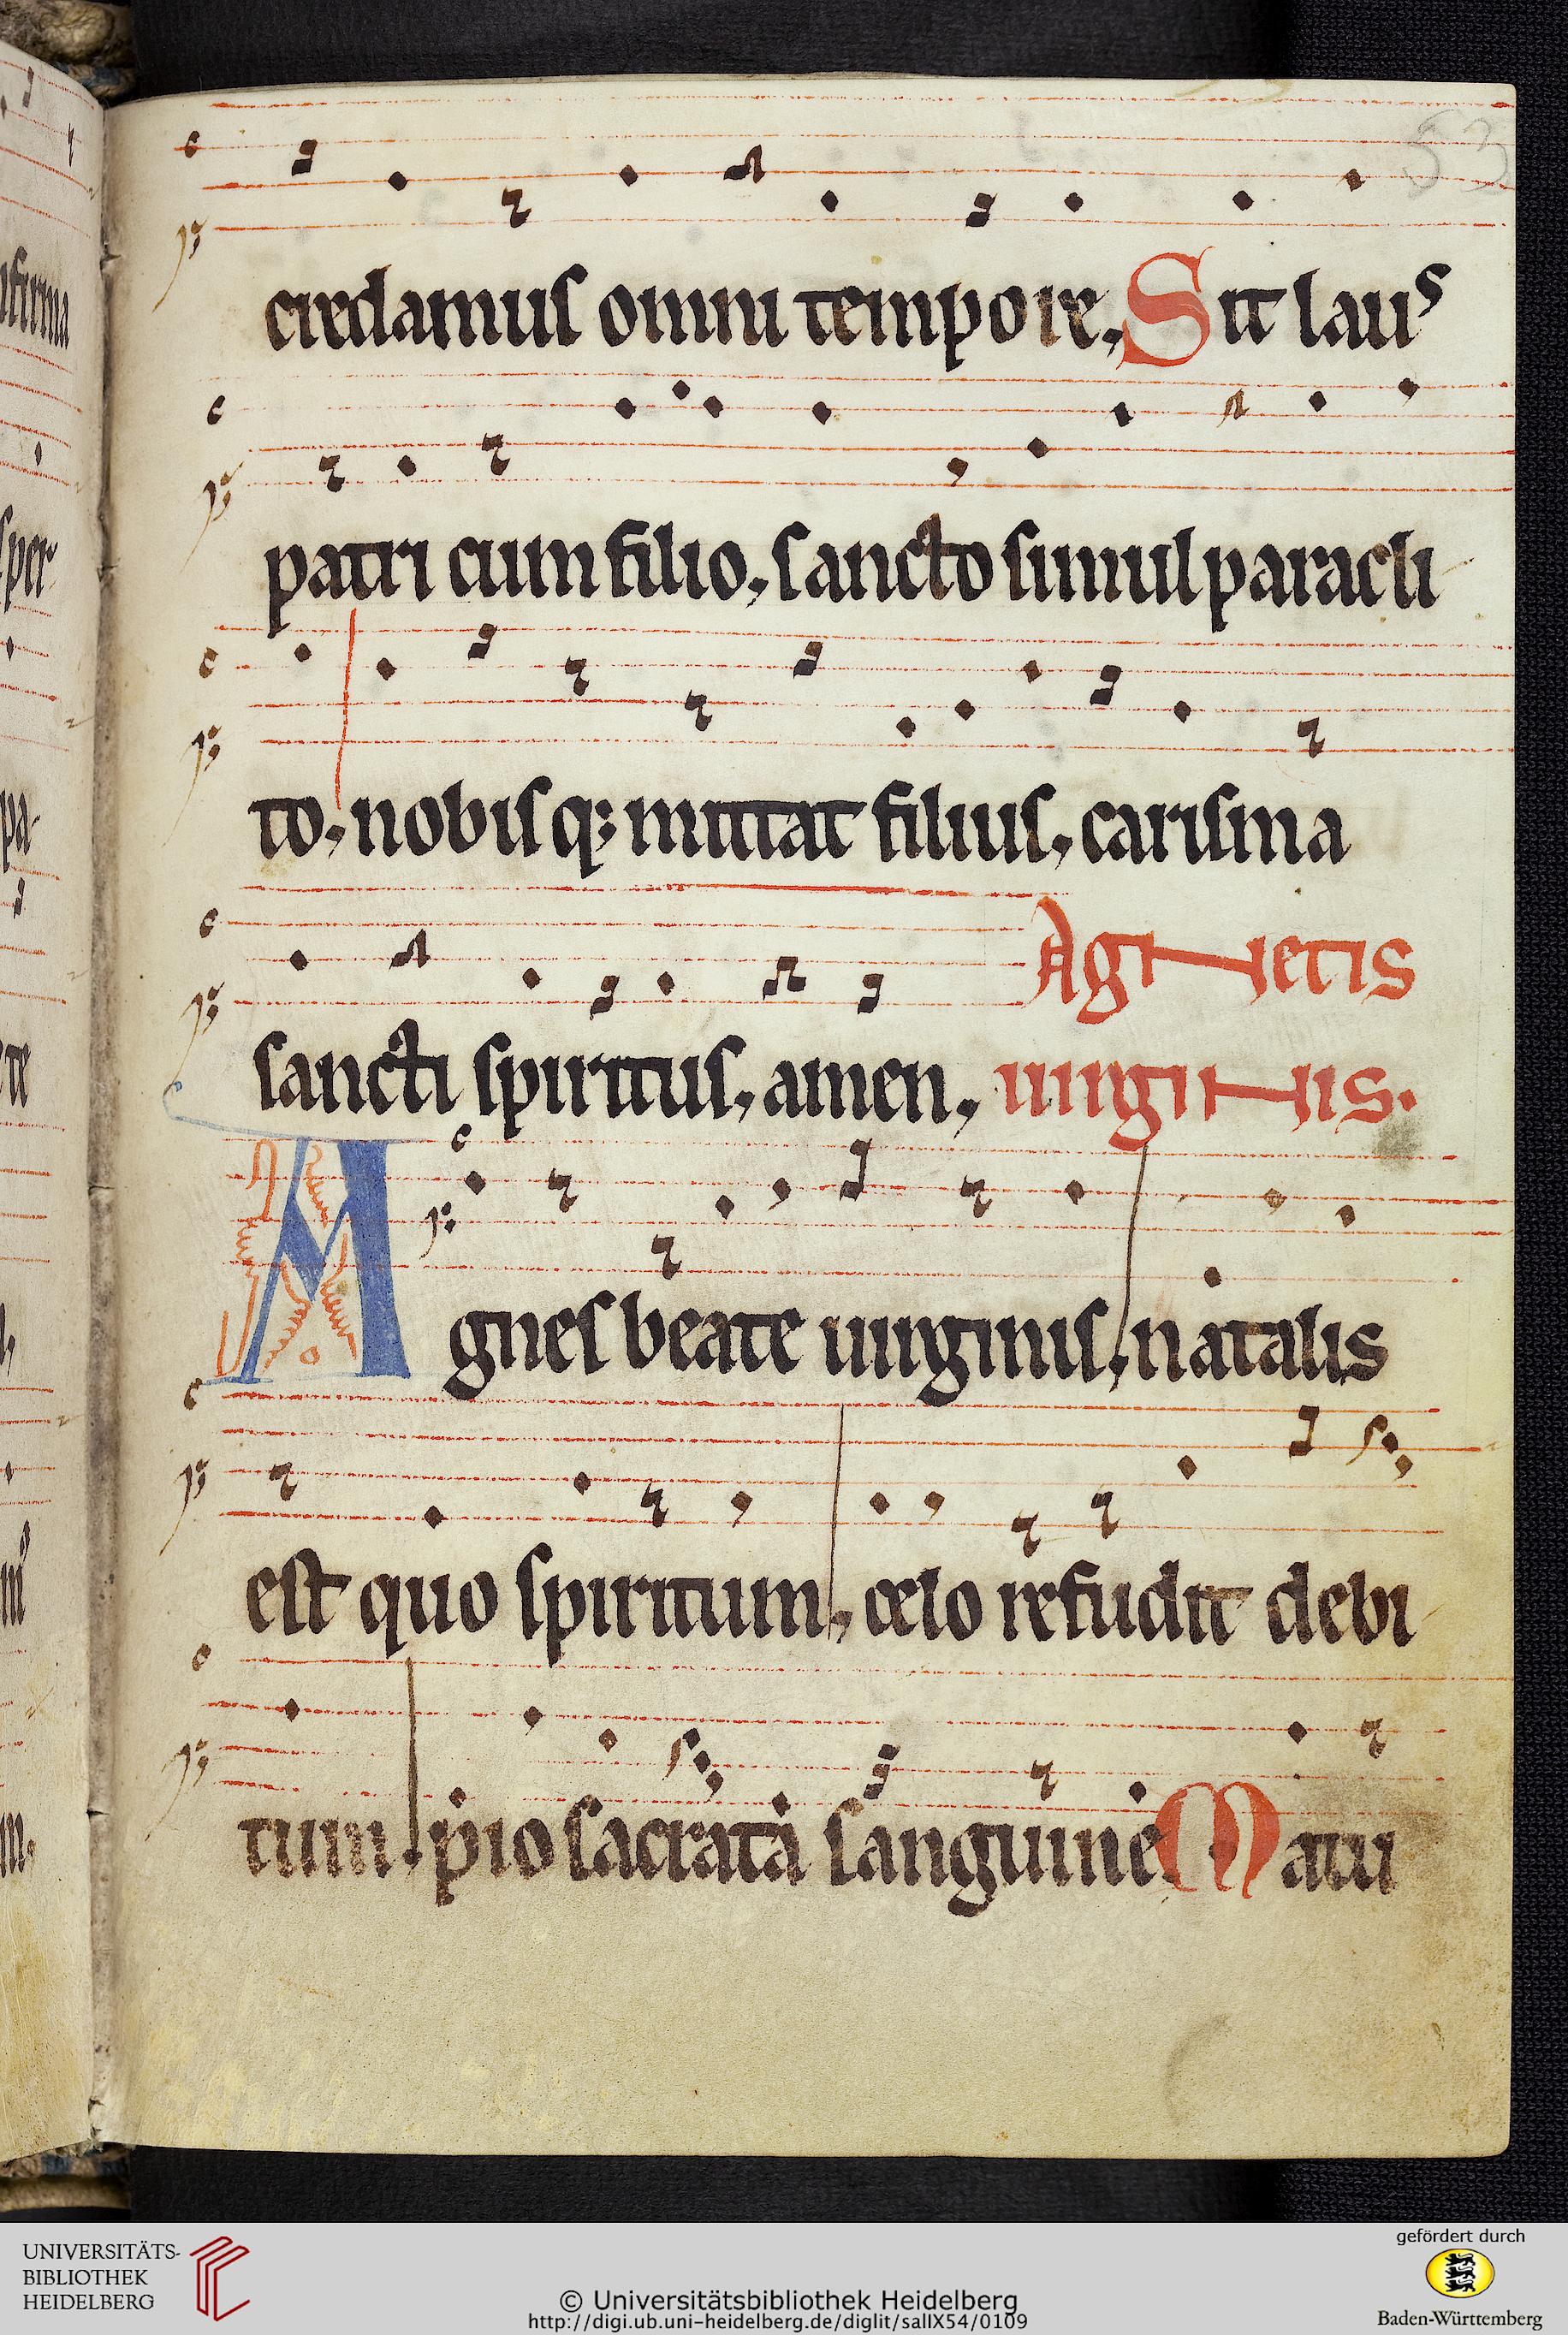 53
credamus omni tempore, Sit laus
patri cum filio, sancto simul paracli
to, nobisq; mittat filius, carisma
Agnetis
sancti spiritus, amen, uirginis.
Agnes beate uirginis, natalis
est quo spiritum, celo refudit debi
tum pio sacrata sanguine. Matu
UNIVERSITÄTS-
BIBLIOTHEK
HEIDELBERG
© Universitätsbibliothek Heidelberg
http://digi.ub.uni-heidelberg.de/diglit/salIX54/0109
gefördert durch
Baden-Württemberg